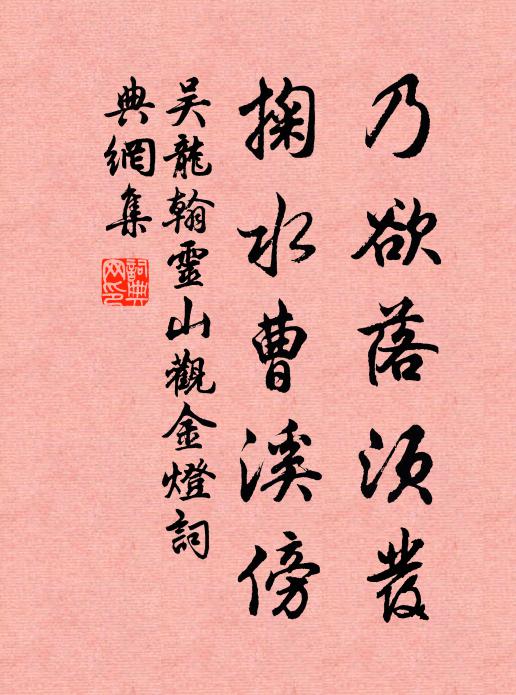 乃欲落须發
掬水曹溪傍
吴龍翰靈山觀金燈詞
典網集
詞典網印